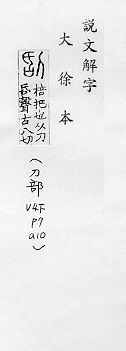 說文解字
大徐本
掊把也从刀
聲古八切
(刀部
V4下
P7
a10)